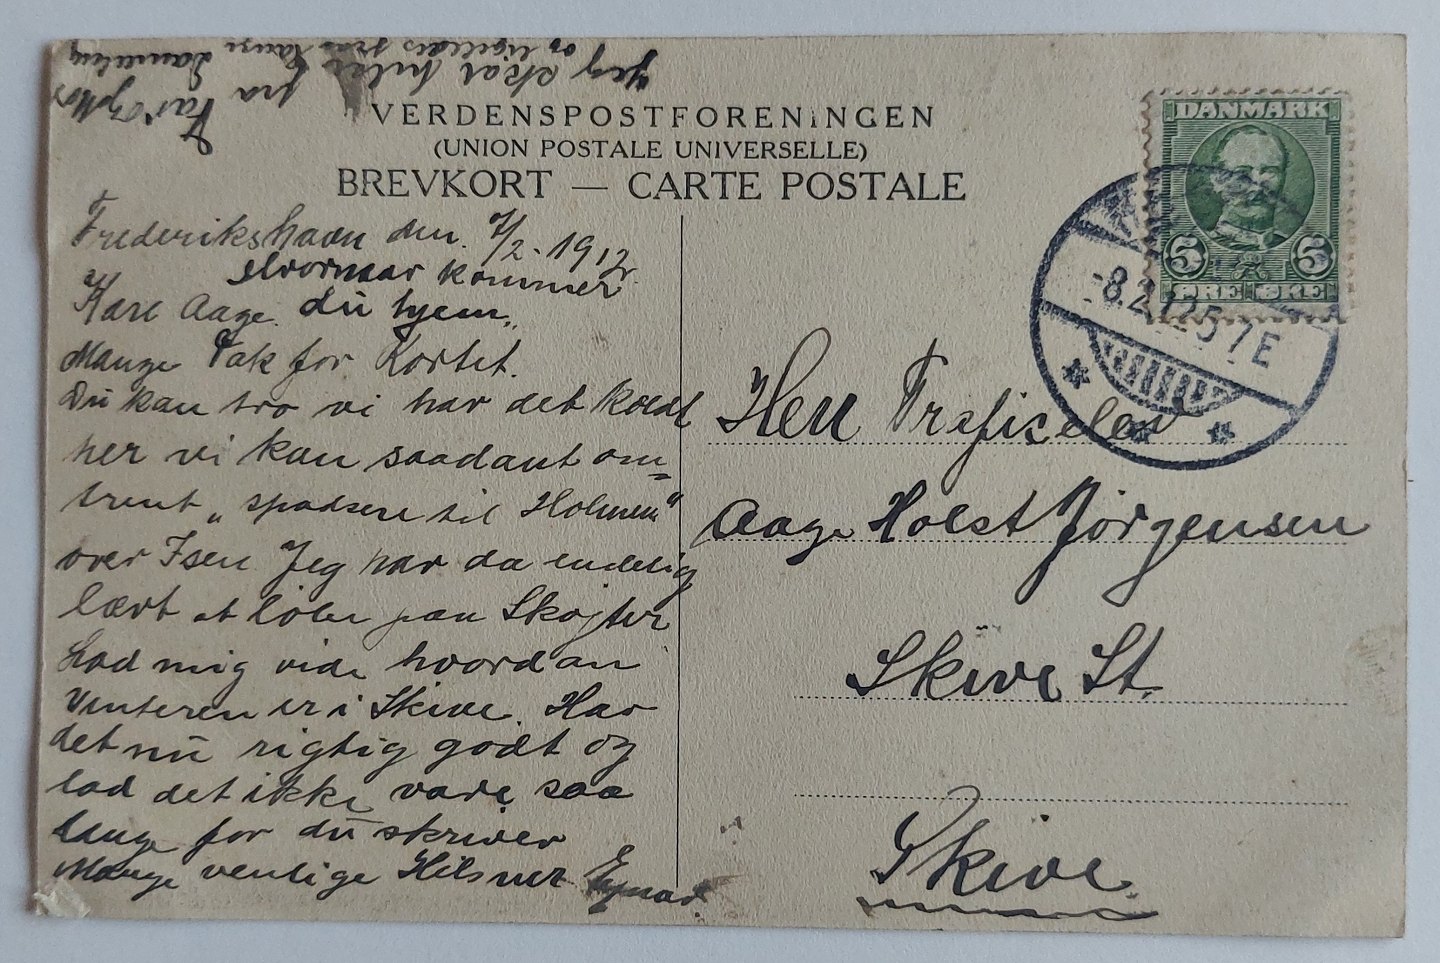 Jeg skal hilse
fra Far og Mor
og ligeledes fra
VERDENSPOSTFORENINGEN
(UNION POSTALE UNIVERSELLE)
BREVKORT — CARTE POSTALE
Frederikshavn den. 7/2-1912.
Kære Aage.
Hvornaar kommer
du hjem.
Mange Tak for Kortet.
Du kan tro vi har det koldt
her vi kan saadant om=
trent „spadsere til Holmen"
over Isen. Jeg har da endelig
lært at løbe paa Skøjter
Lad mig vide hvordan
Vinteren er i Skive. Har
det nu rigtig godt og
lad det ikke vare saa
længe før du skriver
Mange venlige Hilsner Ejnar.
DANMARK
5 5
ØRE ØRE
-8.2.12.5-7E
Herr Trafikelev
Aage Holst Jørgensen
Skive St.
Skive